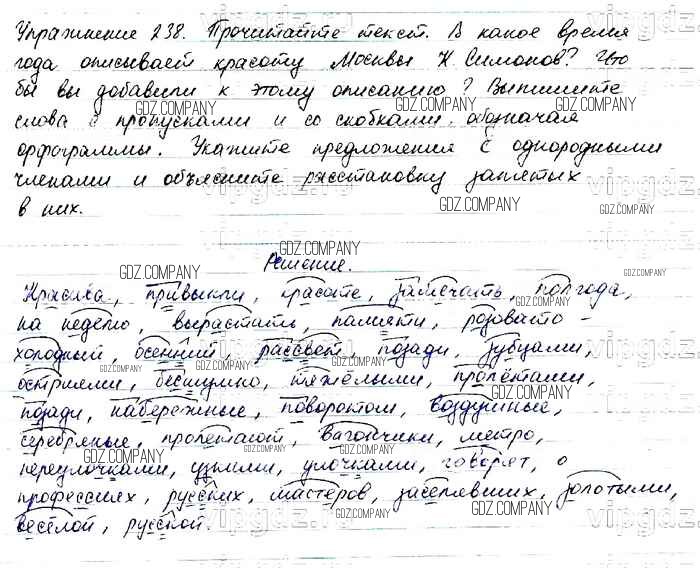 Упражнение 238. Прочитайте текст. В какое время
года описывает красоту Москвы К. Симонов? Что
бы вы добавили к этому описанию? Выпишите
слова с пропусками и со скобками, обозначая
орфограммы. Укажите предложения с однородными
членами и объясните расстановку запятых
в них.
Решение.
Красива, привыкли, красоте, замечать, полгода,
на неделю, вырастить, памяти, розовато-
холодный, осенний, рассвет, позади, зубцами,
остриями, бесшумно, тяжёлыми, пролётами,
позади, набережные, поворотом, воздушные,
серебряные, пролетают, вагончики, метро,
переулочками, узкими, улочками, говорят, о
профессиях, русских, мастеров, заселявших, золотыми,
весёлой, русской.
GDZ.COMPANY
vipgdz.ru